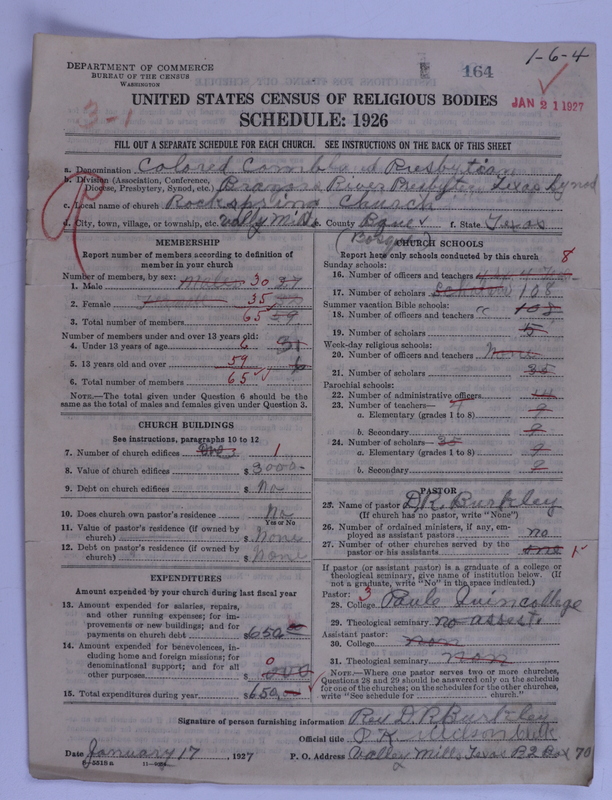 1-6-4
DEPARTMENT OF COMMERCE
BUREAU OF THE CENSUS
WASHINGTON
164
JAN 21 1927
3-1
UNITED STATES CENSUS OF RELIGIOUS BODIES
SCHEDULE: 1926
FILL OUT A SEPARATE SCHEDULE FOR EACH CHURCH. SEE INSTRUCTIONS ON THE BACK OF THIS SHEET
a. Denomination Colored Presbyterian
b. Division (Association, Conference, Diocese, Presbytery, Synod, etc.) River Texas Synod
c. Local name of church Rockspring Church
d. City, town, village, or township, etc. Vally Mills e. County Bosque f. State Texas
MEMBERSHIP
Report number of members according to definition of
member in your church
Number of members, by sex:
1. Male 30
2. Female 35
3. Total number of members 65 59
Number of members under and over 13 years old:
4. Under 13 years of age 6
5. 13 years old and over 59
6. Total number of members 65
NOTE.—The total given under Question 6 should be the
same as the total of males and females given under Question 3.
CHURCH BUILDINGS
See instructions, paragraphs 10 to 12
7. Number of church edifices One 1
8. Value of church edifices $ 3000
9. Debt on church edifices $ No
10. Does church own pastor's residence? No
Yes or No
11. Value of pastor's residence (if owned by
church) $ None
12. Debt on pastor's residence (if owned by
church) $ None
EXPENDITURES
Amount expended by your church during last fiscal year
13. Amount expended for salaries, repairs,
and other running expenses; for im-
provements or new buildings; and for
payments on church debt $ 650
14. Amount expended for benevolences, in-
cluding home and foreign missions; for
denominational support; and for all
other purposes $ 0
15. Total expenditures during year $ 650
CHURCH SCHOOLS
Report here only schools conducted by this church
Sunday schools:
16. Number of officers and teachers 8
17. Number of scholars 108
Summer vacation Bible schools:
18. Number of officers and teachers 108
19. Number of scholars
Week-day religious schools:
20. Number of officers and teachers None
21. Number of scholars 35
Parochial schools:
22. Number of administrative officers
23. Number of teachers—
a. Elementary (grades 1 to 8)
b. Secondary
24. Number of scholars— 35
a. Elementary (grades 1 to 8)
b. Secondary
PASTOR
25. Name of pastor D.R. Burkley
(If church has no pastor, write "None")
26. Number of ordained ministers, if any, em-
ployed as assistant pastors no
27. Number of other churches served by the
pastor or his assistants one 1
If pastor (or assistant pastor) is a graduate of a college or
theological seminary, give name of institution below. (If
not a graduate, write "No" in the space indicated.)
Pastor: 3
28. College Pauls Quincollege
29. Theological seminary no assest.
Assistant pastor:
30. College non
31. Theological seminary non
NOTE.—Where one pastor serves two or more churches,
Questions 28 and 29 should be answered only on the schedule
for one of the churches; on the schedules for the other churches,
write "See schedule for church."
Signature of person furnishing information Rev D.R. Burkley
Official title
Date January 17, 1927 P. O. Address Valley Mills Texas R2 Box 70